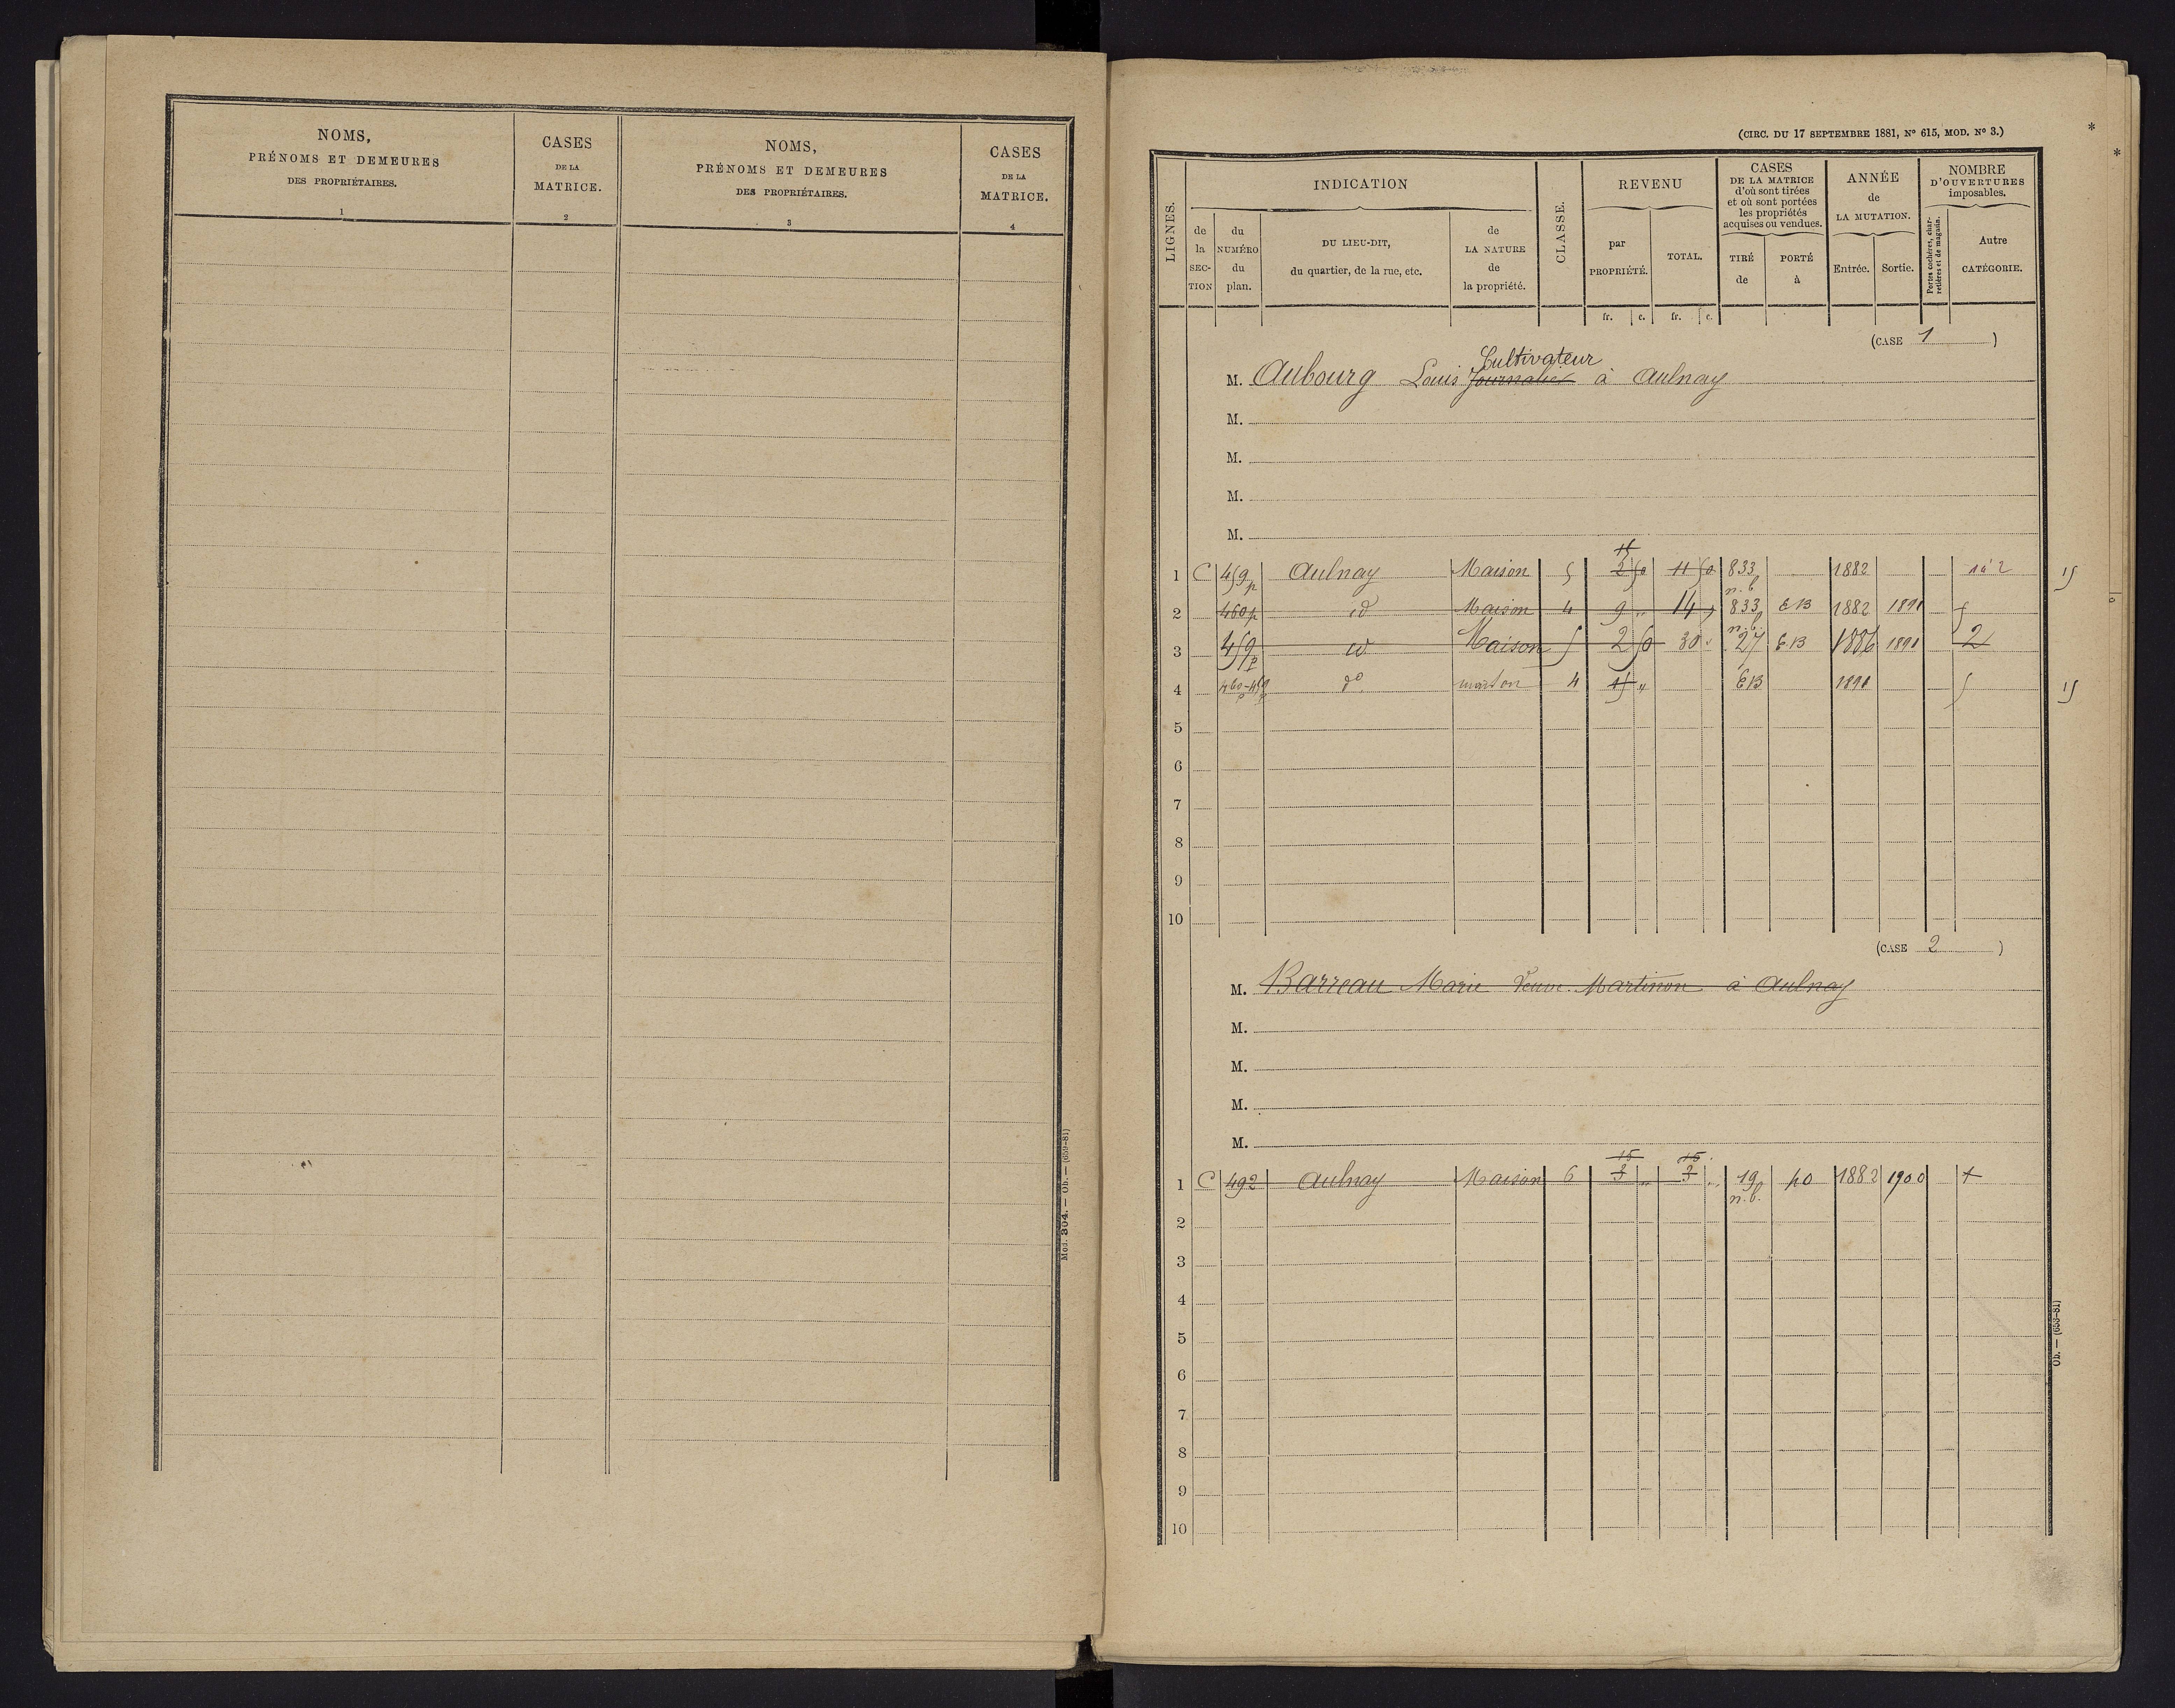 NOMS,
PRÉNOMS ET DEMEURES
DES PROPRIÉTAIRES.
1
CASES
DE LA
MATRICE.
2
NOMS,
PRÉNOMS ET DEMEURES
DES PROPRIÉTAIRES.
3
CASES
DE LA
MATRICE.
4
Mod. 304. — Ob. — (659-81)
(CIRC. DU 17 SEPTEMBRE 1881, Nº 615, MOD. Nº 3.)
*
*
LIGNES.
INDICATION
de
la
SEC-
TION
du
NUMÉRO
du
plan.
DU LIEU-DIT,
du quartier, de la rue, etc.
de
LA NATURE
de
la propriété.
CLASSE.
REVENU
par
PROPRIÉTÉ.
TOTAL.
fr. c. fr. c.
CASES
DE LA MATRICE
d'où sont tirées
et où sont portées
les propriétés
acquises ou vendues.
TIRÉ
de
PORTÉ
à
ANNÉE
de
LA MUTATION.
Entrée. Sortie.
NOMBRE
D'OUVERTURES
imposables.
Portes cochères, char-
retières et de magasin.
Autre
CATÉGORIE.
(CASE 1 )
Cultivateur
M. Aubourg Louis Journalier à Aulnay
M.
M.
M.
M.
1 C 459p Aulnay Maison 5 2 50 11 50 833 1882 15
n.b.
2 460p id Maison 4 9 " 14 833 EB 1882 1891 5
n.b.
3 459p id Maison 5 2 50 30 27 EB 1886 1891 2
4 460p-459p do maison 4 15 " EB 1891 5 15
5
6
7
8
9
10
(CASE 2 )
M. Barreau Marie Veuve Martinon à Aulnay
M.
M.
M.
M.
15 15
1 C 492 Aulnay Maison 6 3 " 3 " 19 40 1882 1900 1
n.b.
2
3
4
5
6
7
8
9
10
Ob. — (653-81)